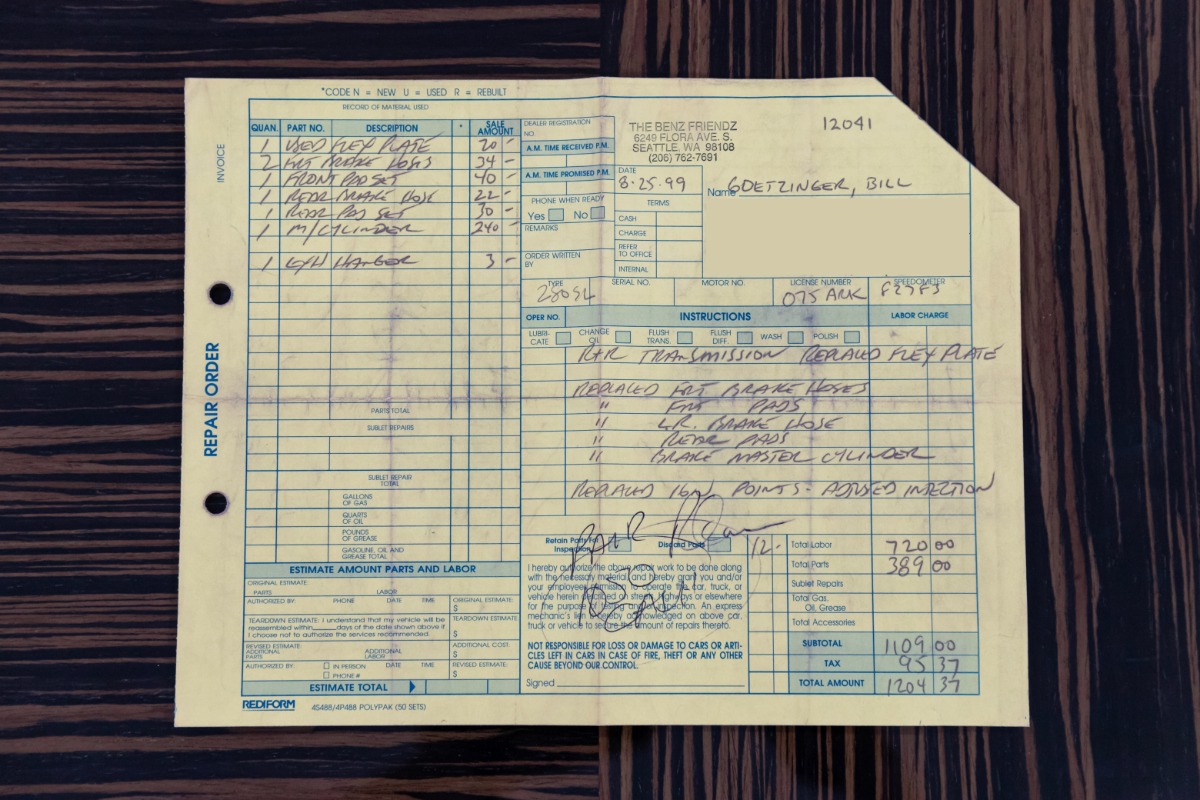 *CODE N = NEW U = USED R = REBUILT
RECORD OF MATERIAL USED
QUAN. PART NO. DESCRIPTION * SALE AMOUNT
1 USED FLEX PLATE 20 -
2 FRT BRAKE HOSES 34 -
1 FRONT PAD SET 40 -
1 REAR BRAKE HOSE 22 -
1 REAR PAD SET 30 -
1 M/CYLINDER 240 -
1 EXH HANGER 3 -
PARTS TOTAL
SUBLET REPAIRS
SUBLET REPAIR TOTAL
GALLONS OF GAS
QUARTS OF OIL
POUNDS OF GREASE
GASOLINE, OIL AND GREASE TOTAL
ESTIMATE AMOUNT PARTS AND LABOR
ORIGINAL ESTIMATE:
PARTS LABOR
AUTHORIZED BY: PHONE DATE TIME ORIGINAL ESTIMATE: $
TEARDOWN ESTIMATE: I understand that my vehicle will be
reassembled within____days of the date shown above if
I choose not to authorize the services recommended.
TEARDOWN ESTIMATE $
REVISED ESTIMATE
ADDITIONAL PARTS ADDITIONAL LABOR ADDITIONAL COST: $
AUTHORIZED BY: IN PERSON DATE TIME REVISED ESTIMATE:
PHONE # $
ESTIMATE TOTAL
REDIFORM 4S488/4P488 POLYPAK (50 SETS)
INVOICE
REPAIR ORDER
DEALER REGISTRATION
NO
A.M. TIME RECEIVED P.M.
A.M. TIME PROMISED P.M.
PHONE WHEN READY
Yes No
REMARKS
ORDER WRITTEN BY
THE BENZ FRIENDZ
6249 FLORA AVE. S.
SEATTLE, WA 98108
(206) 762-7691
12041
DATE
8-25-99
Name GOETZINGER, BILL
TERMS
CASH
CHARGE
REFER TO OFFICE
INTERNAL
TYPE SERIAL NO. MOTOR NO. LICENSE NUMBER SPEEDOMETER
280SL 075 ARK
OPER NO. INSTRUCTIONS LABOR CHARGE
LUBRI-CATE CHANGE OIL FLUSH TRANS. FLUSH DIFF. WASH POLISH
R+R TRANSMISSION REPLACED FLEX PLATE
REPLACED FRT BRAKE HOSES
" FRT PADS
" BRAKE HOSE
" REAR PADS
" BRAKE MASTER CYLINDER
REPLACED IGN POINTS - ADJUSTED INJECTION
Retain Parts For Inspection Discard Parts
12-
I hereby authorize the above repair work to be done along
with the necessary material, and hereby grant you and/or
your employees permission to operate the car, truck, or
vehicle herein described on streets, highways or elsewhere
for the purpose of testing and/or inspection. An express
mechanic's lien is hereby acknowledged on above car,
truck or vehicle to secure the amount of repairs thereto.
NOT RESPONSIBLE FOR LOSS OR DAMAGE TO CARS OR ARTI-
CLES LEFT IN CARS IN CASE OF FIRE, THEFT OR ANY OTHER
CAUSE BEYOND OUR CONTROL.
Signed
Total Labor 720 00
Total Parts 389 00
Sublet Repairs
Total Gas, Oil, Grease
Total Accessories
SUBTOTAL 1109 00
TAX 95 37
TOTAL AMOUNT 1204 37